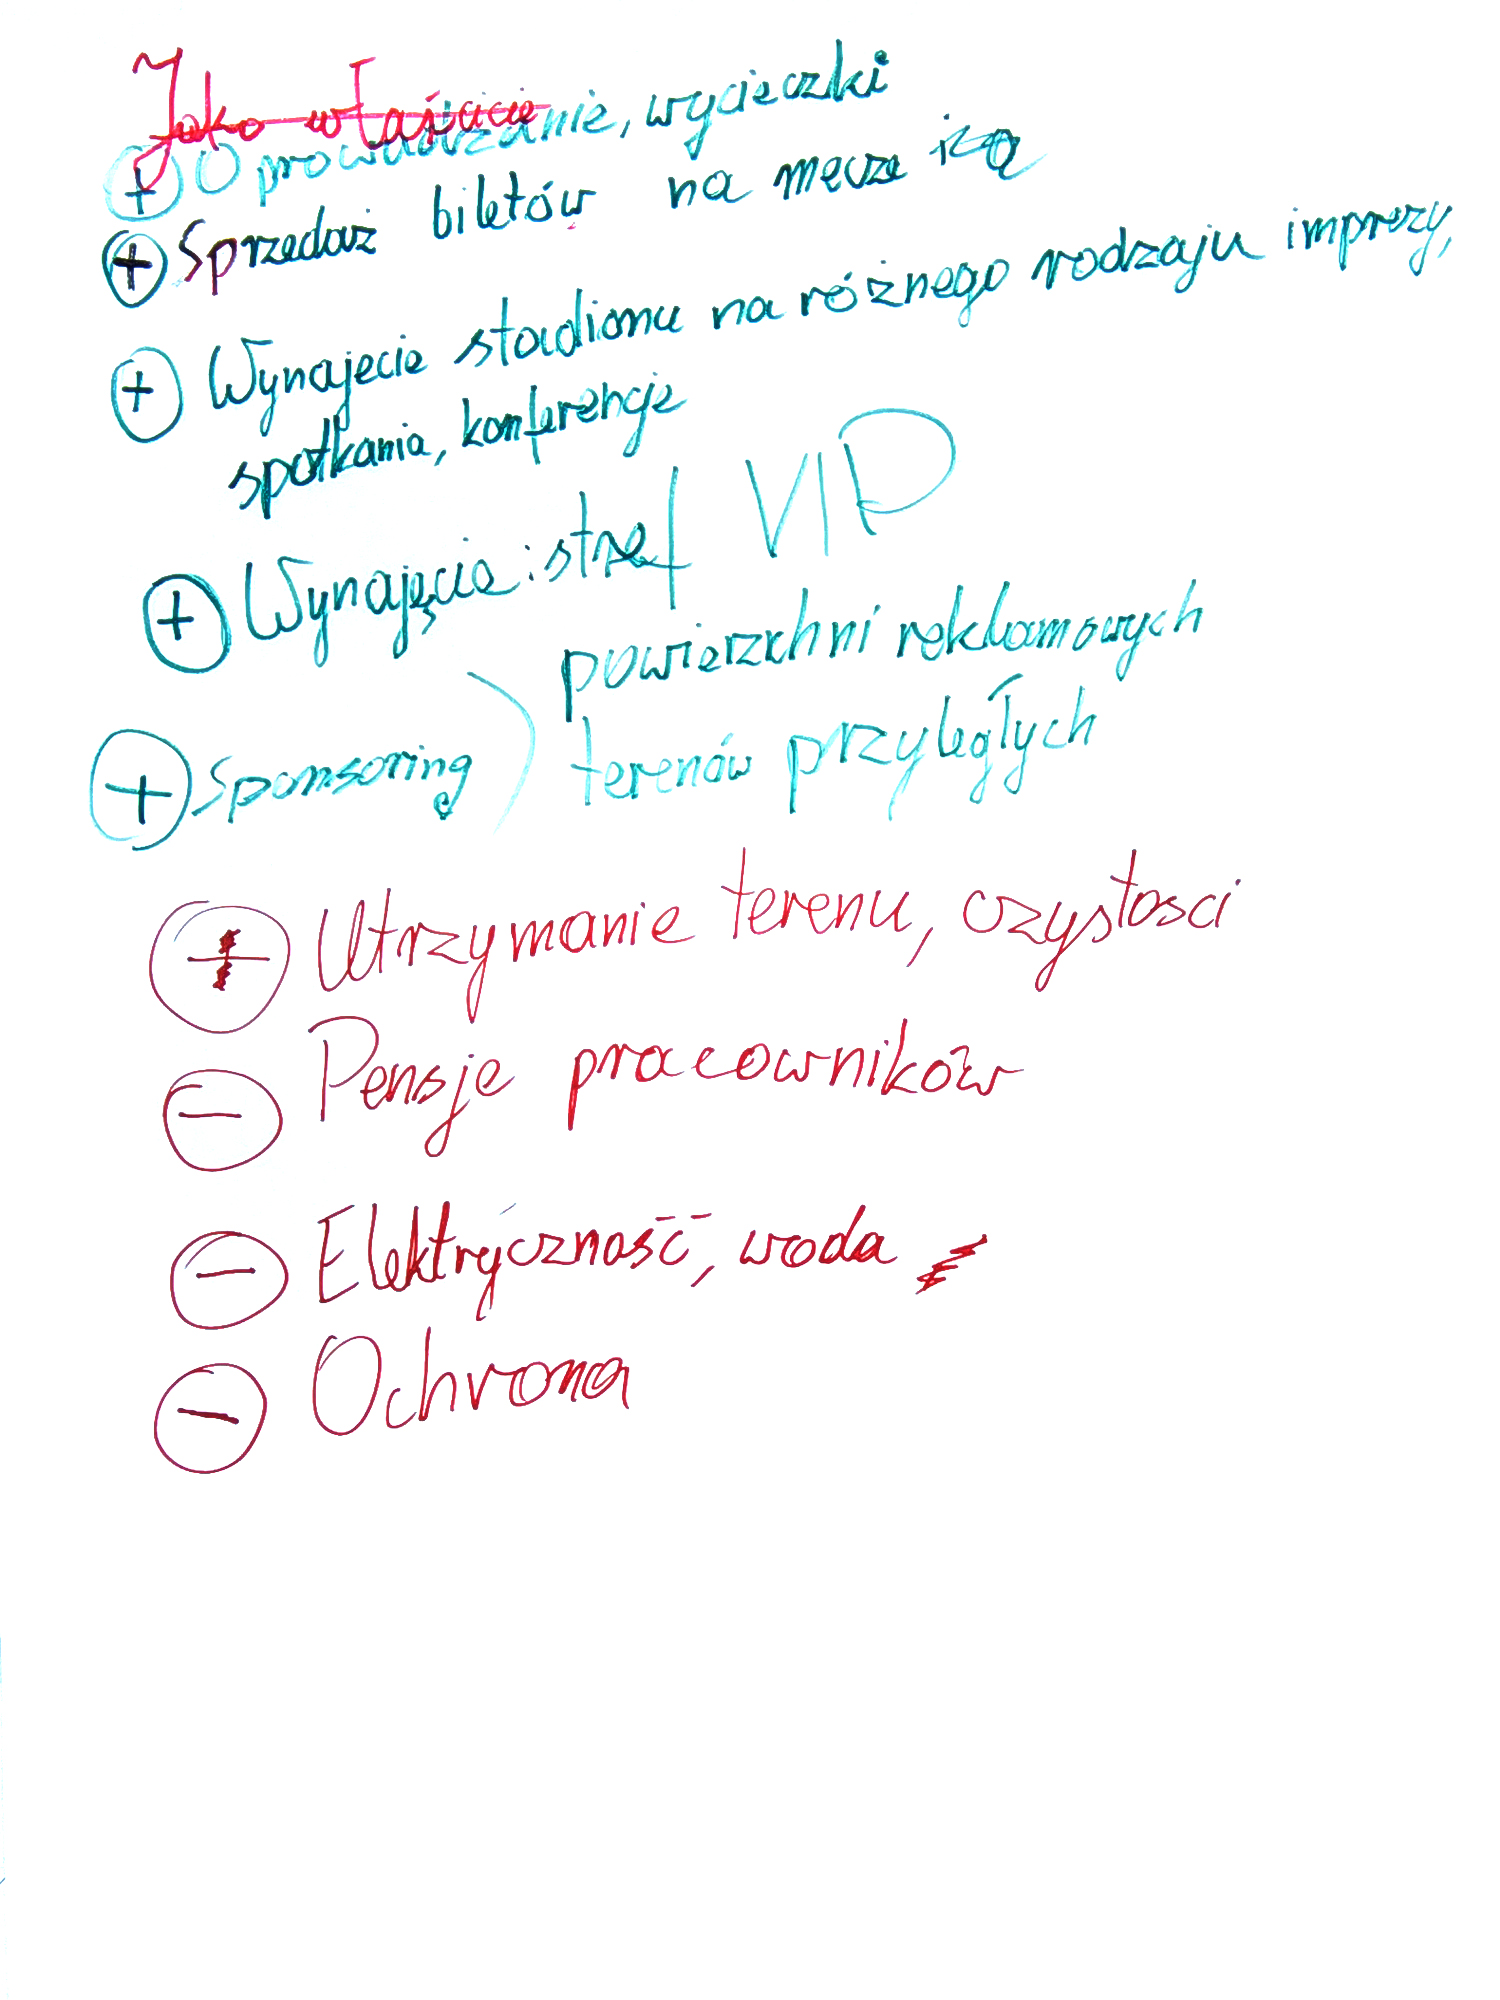 Jako właścicie
+ Oprowadzanie, wycieczki
+ Sprzedaż biletów na mecze
+ Wynajęcie stadionu na różnego rodzaju imprezy,
spotkania, konferencje
+ Wynajęcie: stref VIP
powierzchni reklamowych
+ Sponsoring
terenów przyległych
- Utrzymanie terenu, czystosci
- Pensje pracowników
- Elektryczność, woda
- Ochrona